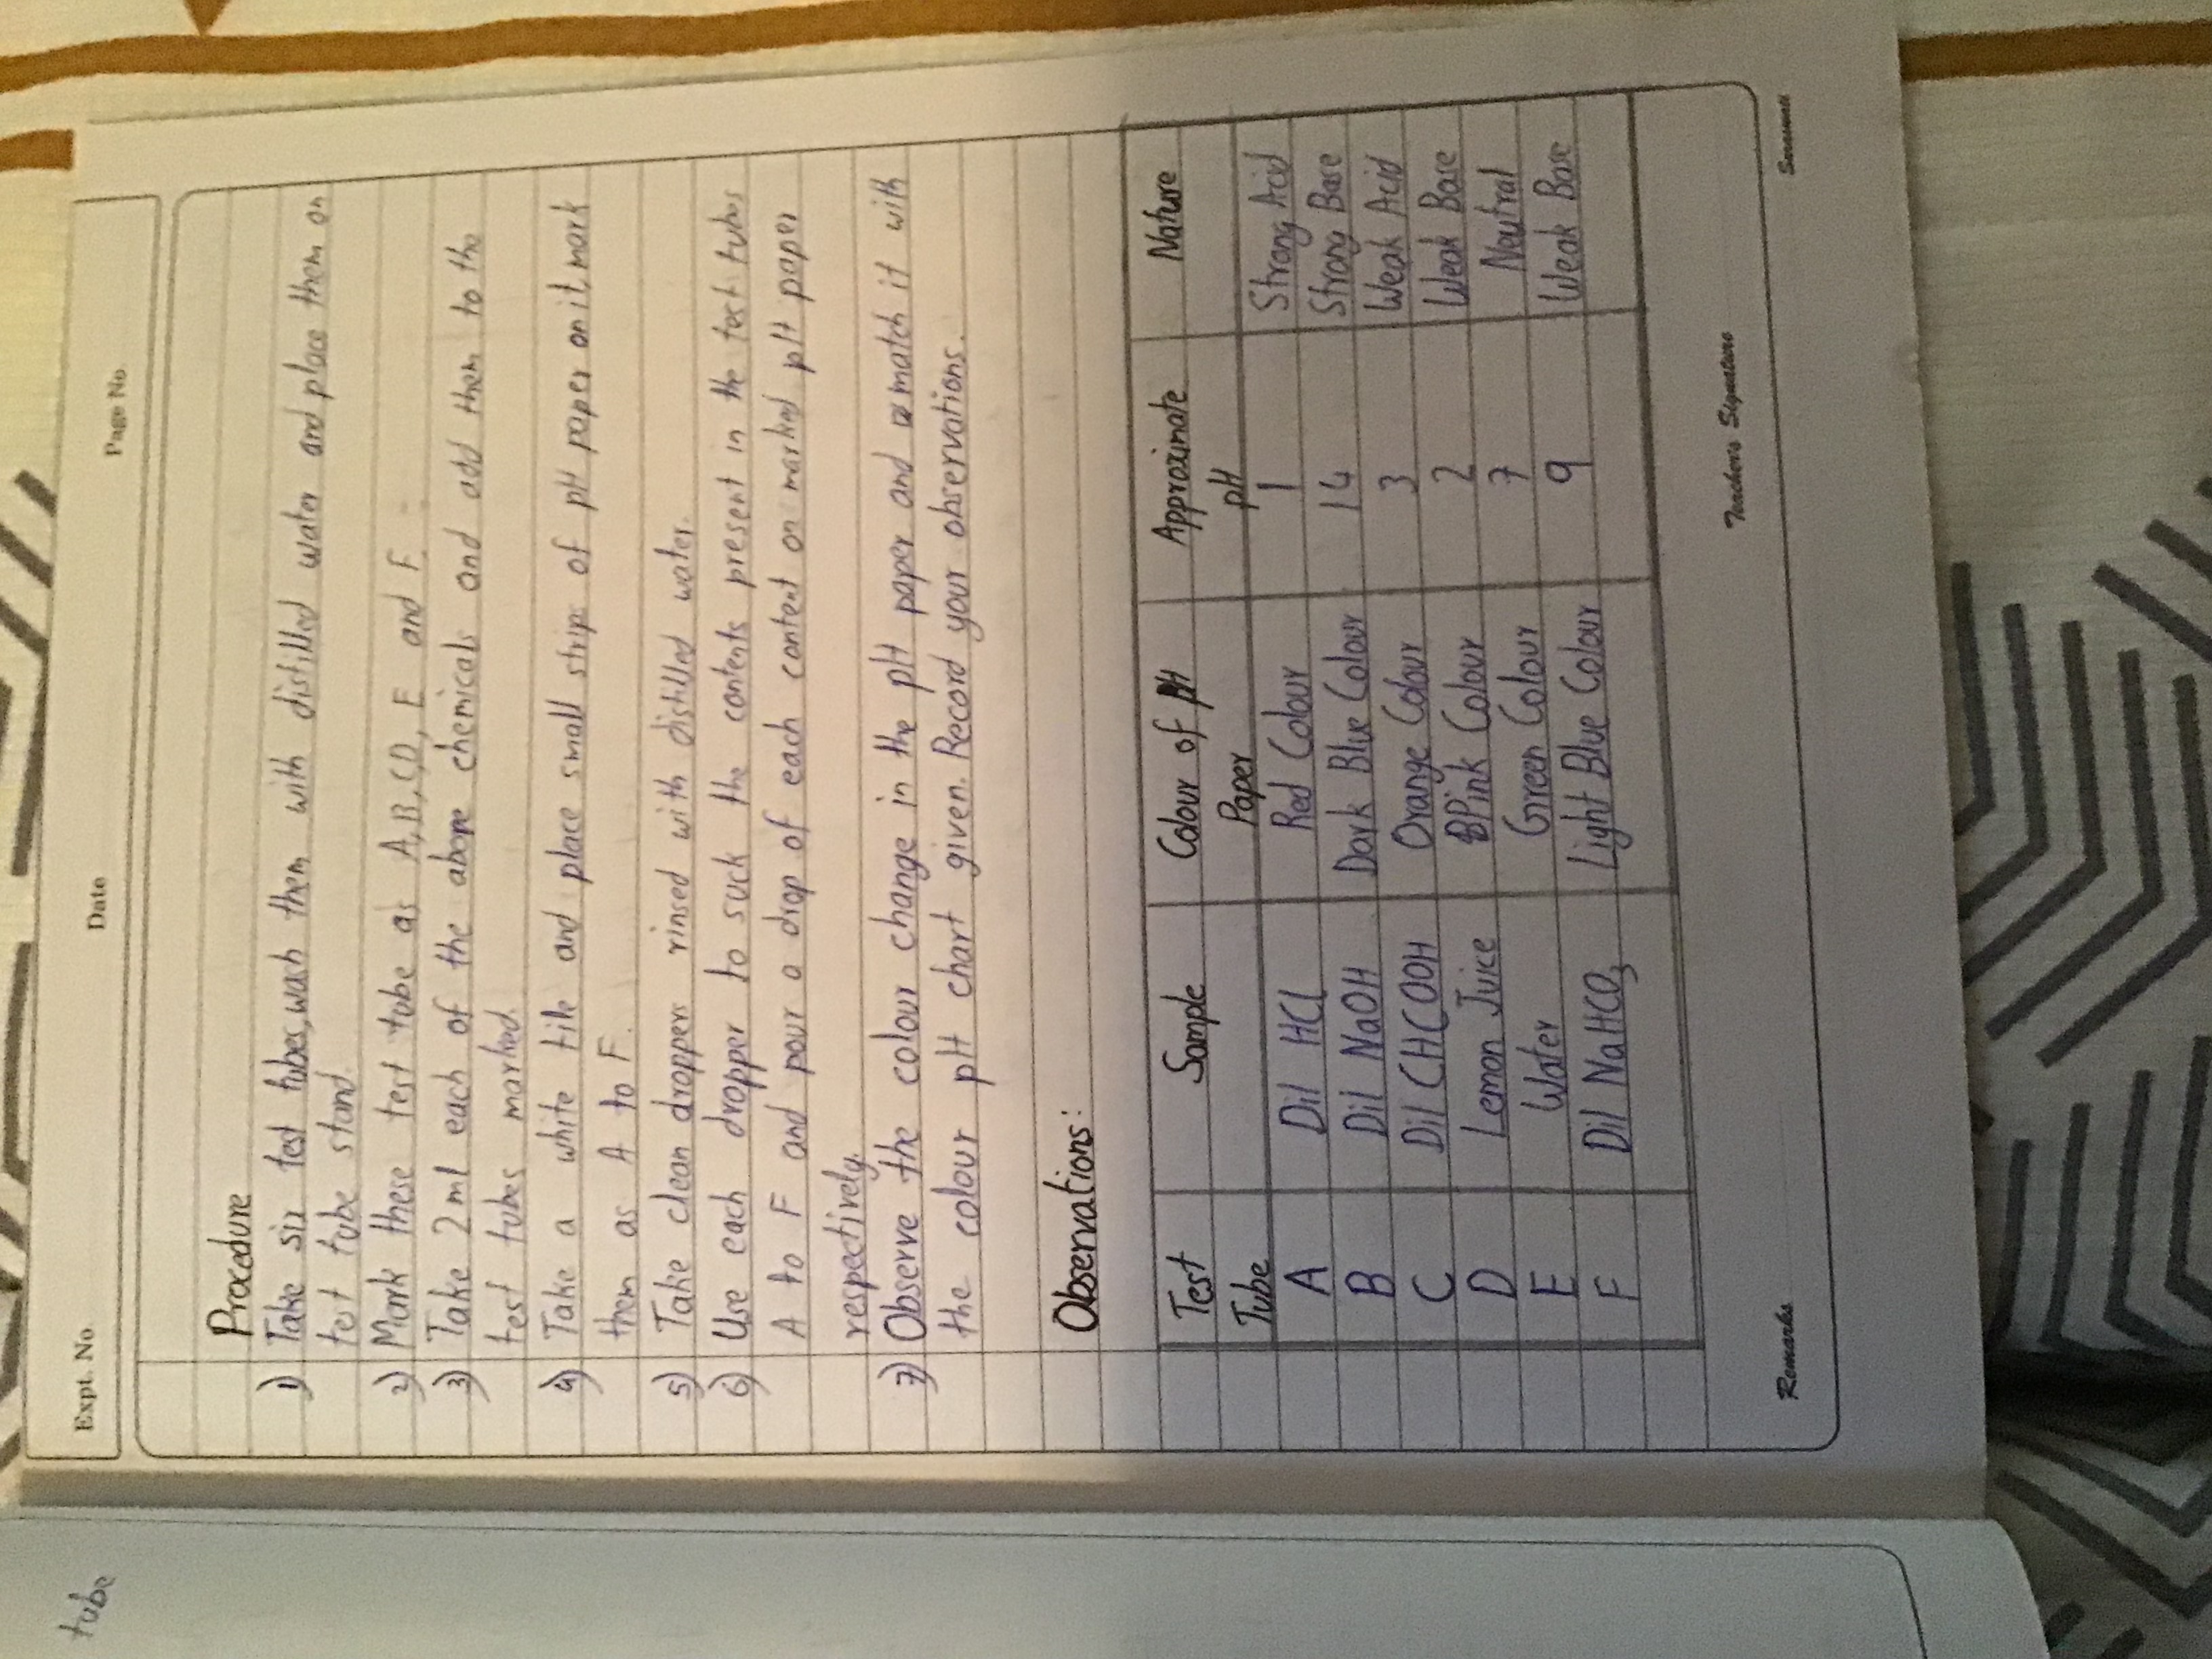 tube
Expt. No
Date
Page No
Procedure
1) Take six test tubes, wash them with distilled water and place them on
test tube stand.
2) Mark these test tube as A, B, C, D, E and F.
3) Take 2 ml each of the above chemicals and add them to the
test tubes marked.
4) Take a white tile and place small strips of pH paper on it, mark
them as A to F.
5) Take clean droppers rinsed with distilled water.
6) Use each dropper to suck the contents present in the test tubes
A to F and pour a drop of each content on marked pH paper
respectively.
7) Observe the colour change in the pH paper and match it with
the colour pH chart given. Record your observations.
Observations:
Test Tube Sample Colour of pH Paper Approximate pH Nature
A Dil HCl Red Colour 1 Strong Acid
B Dil NaOH Dark Blue Colour 14 Strong Base
C Dil CHCOOH Orange Colour 3 Weak Acid
D Lemon Juice Pink Colour 2 Weak Base
E Water Green Colour 7 Neutral
F Dil NaHCO₃ Light Blue Colour 9 Weak Base
Teacher's Signature
Remarks
Saraswati